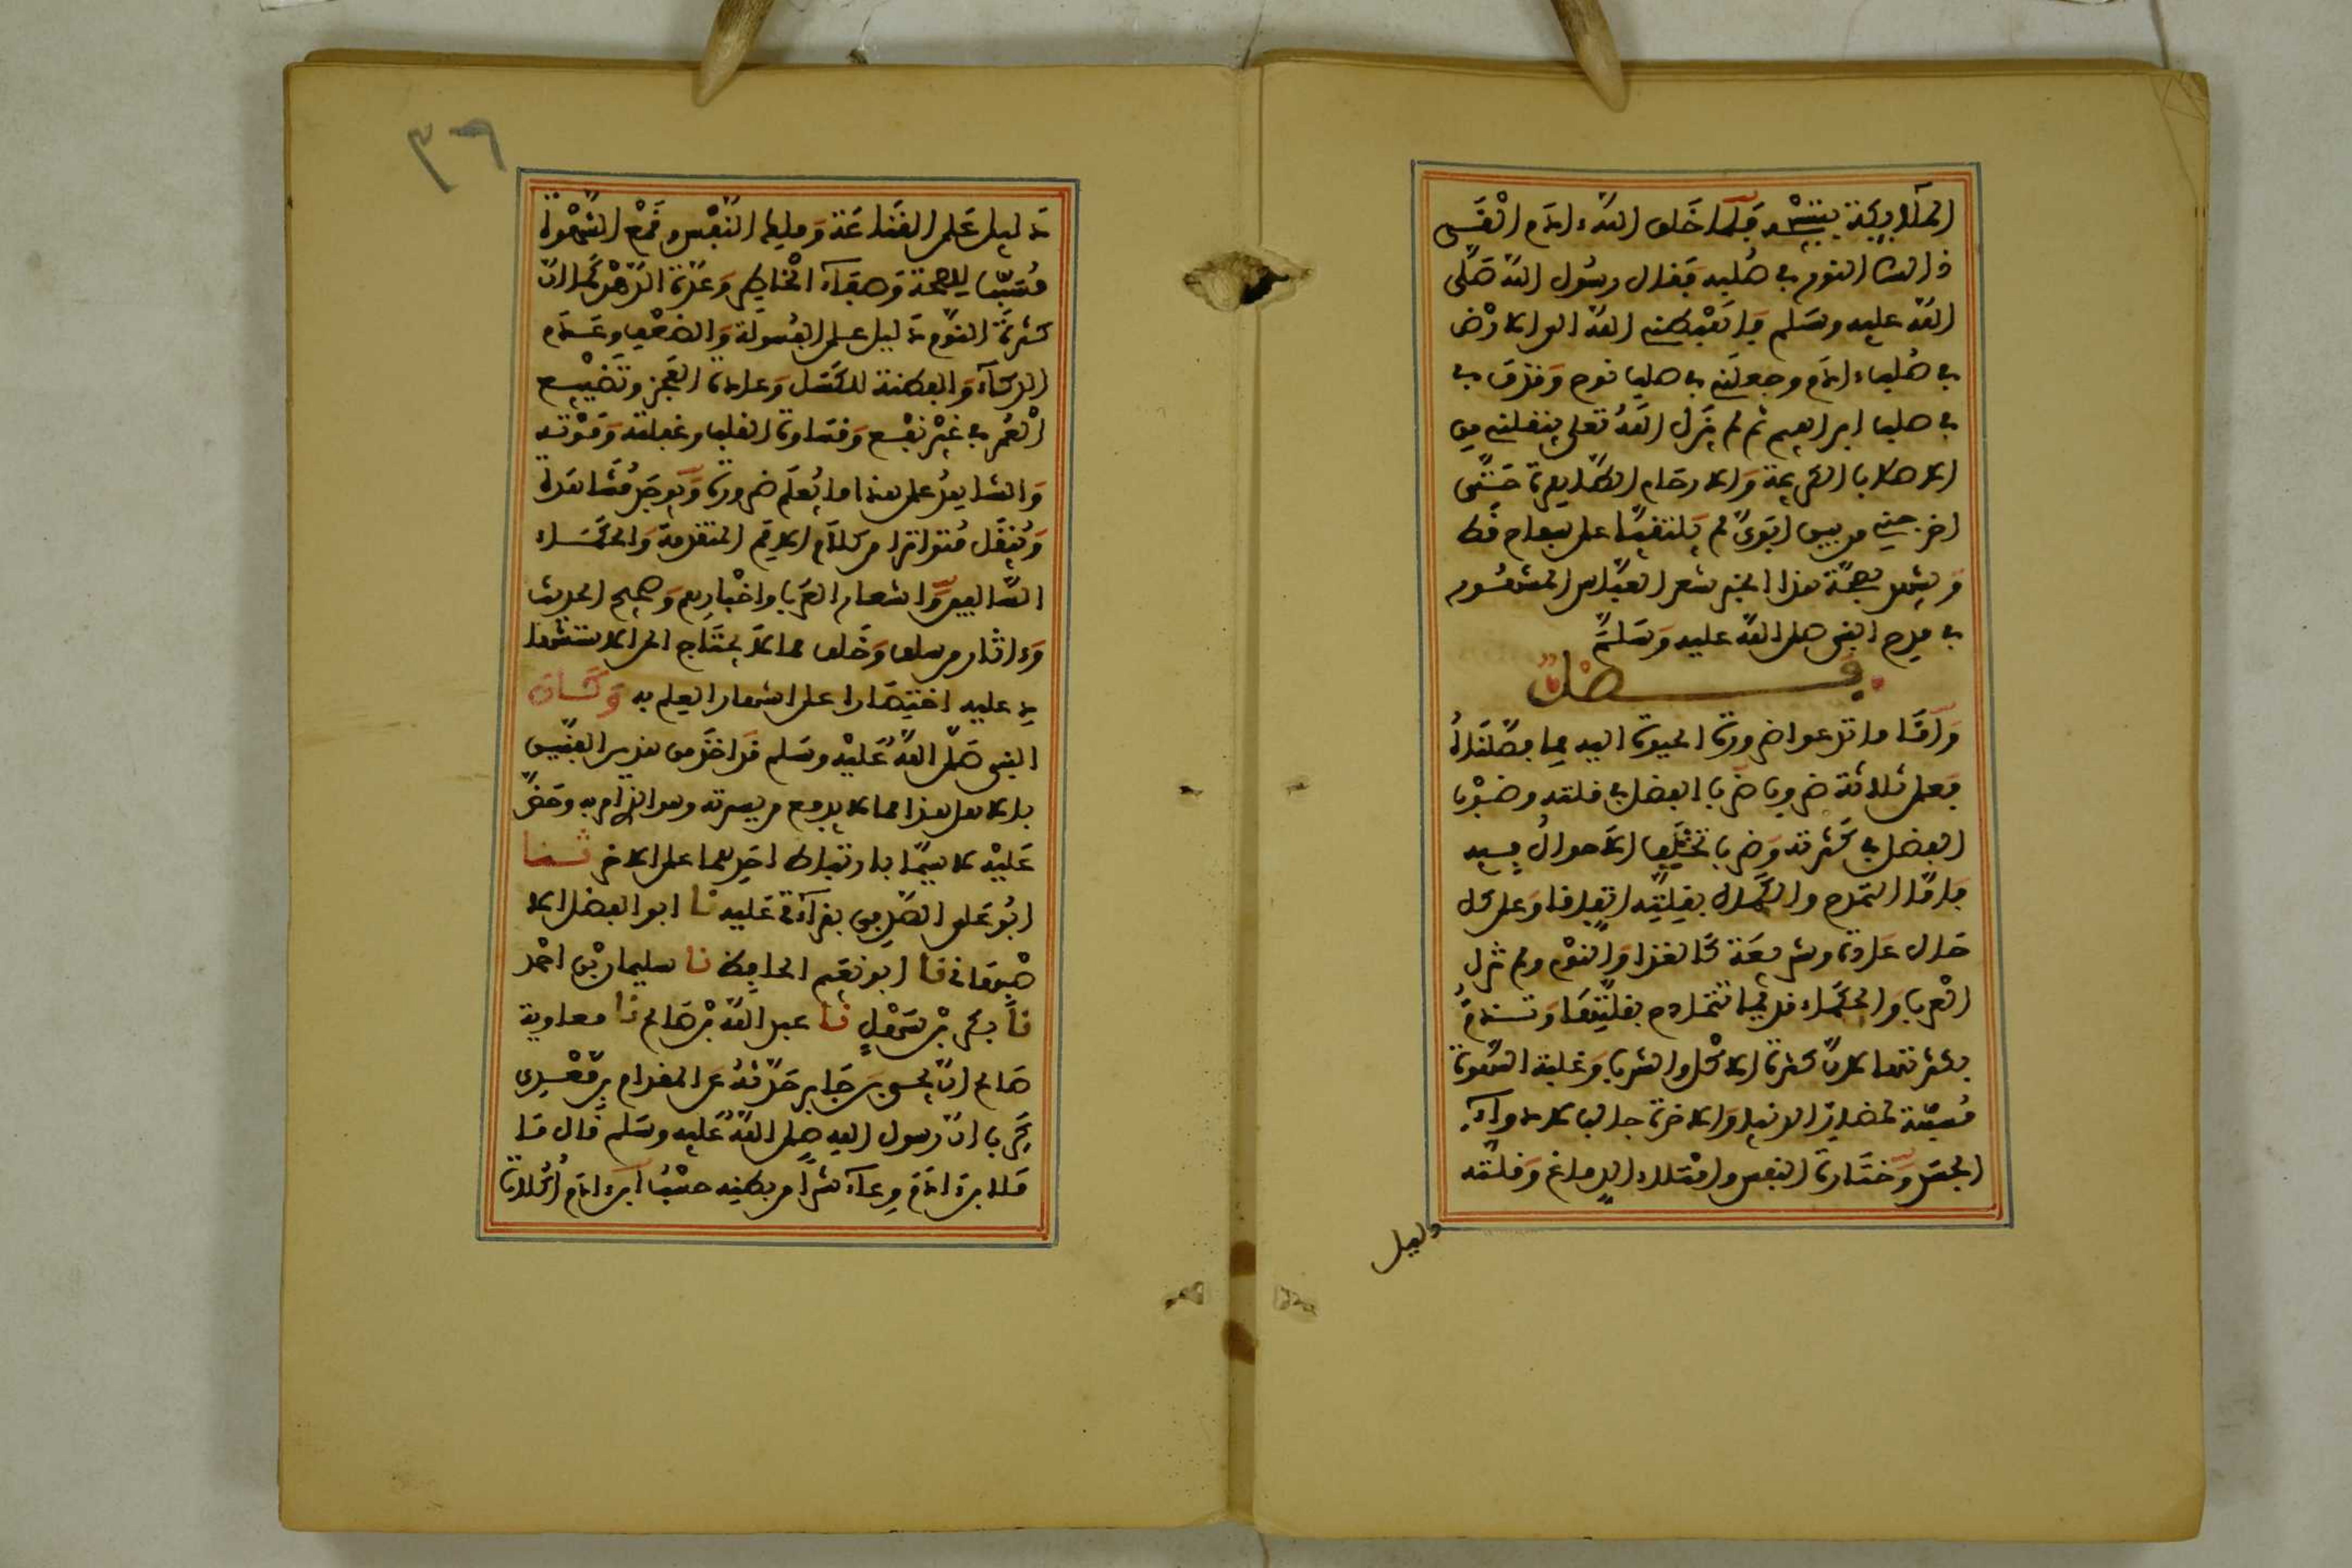 الملائكة بتسبيحه فلما خلق الله ءادم القى
ذالك النور في صلبه فقال رسول الله صلى
الله عليه وسلم فاهبطني الله الى الارض
في صلب ءادم وجعلني في صلب نوح وقذف بي
في صلب ابراهيم ثم لم يزل الله تعلى ينقلني من
الاصلاب الكريمة والارحام الطاهرة حتى
اخرجني من بين ابوي لم يلتقيا على سفاح قط
ويشهد بصحة هذا الخبر شعر العباس المشهور
في مدح النبي صلى الله عليه وسلم
فصل
وأما ما تدعوا ضرورة الحيوة اليه مما فصلناه
فعلى ثلاثة ضروب ضرب الفضل في قلته وضرب
الفضل في كثرته وضرب تختلف الاحوال فيه
فاما التمدح والكمال بقلته اتفاقا وعلى كل
حال عادة وشريعة كالغذا والنوم ولم تزل
العرب والحكماء قديما تتمادح بقلتهما وتذم
بكثرتهما لان كثرة الاكل والشرب وغلبة الشهوة
مسببة لمضار الدنيا والاخرة جالب لادواء
الجسد وخثارة النفس وامتلاء الدماغ وقلته
دليل
٣٦
دليل على القناعة وملك النفس وقمع الشهوة
مسبب للصحة وصفاء الخاطر وحدة الذهن كما ان
كثرة النوم دليل على الفسولة والضعف وعدم
الذكاء والفطنة للكسل وعادة العجز وتضييع
العمر في غير نفع وقساوة القلب وغفلته وموته
والشاهد على هذا ما يعلم ضرورة ويوجد مشاهدة
وينقل متواترا من كلام الامم المتقدمة والحكماء
السالفين واشعار العرب واخبارهم وصحيح الحديث
وءاثار من سلف وخلف مما لا يحتاج الى الاستشها
د عليه اختصارا على اشتهار العلم به وكان
النبي صلى الله عليه وسلم قد اخذ من هذين الفنين
بالاقل هذا مما لا يدفع من سيرته وهو الذي امر به وحض
عليه لا سيما بارتباط احدهما على الاخر ثنا
ابو علي الصدفي بقراءتي عليه نا ابو الفضل الا
صبهاني نا ابو نعيم الحافظ نا سليمان بن احمد
نا بكر بن سهل نا عبد الله بن صالح نا معاوية
صالح ان يحيى بن جابر حدثه عن المقدام بن معدي
كرب ان رسول الله صلى الله عليه وسلم قال ما
ملا ابن ءادم وعاء شرا من بطنه حسب ابن ءادم اكلات